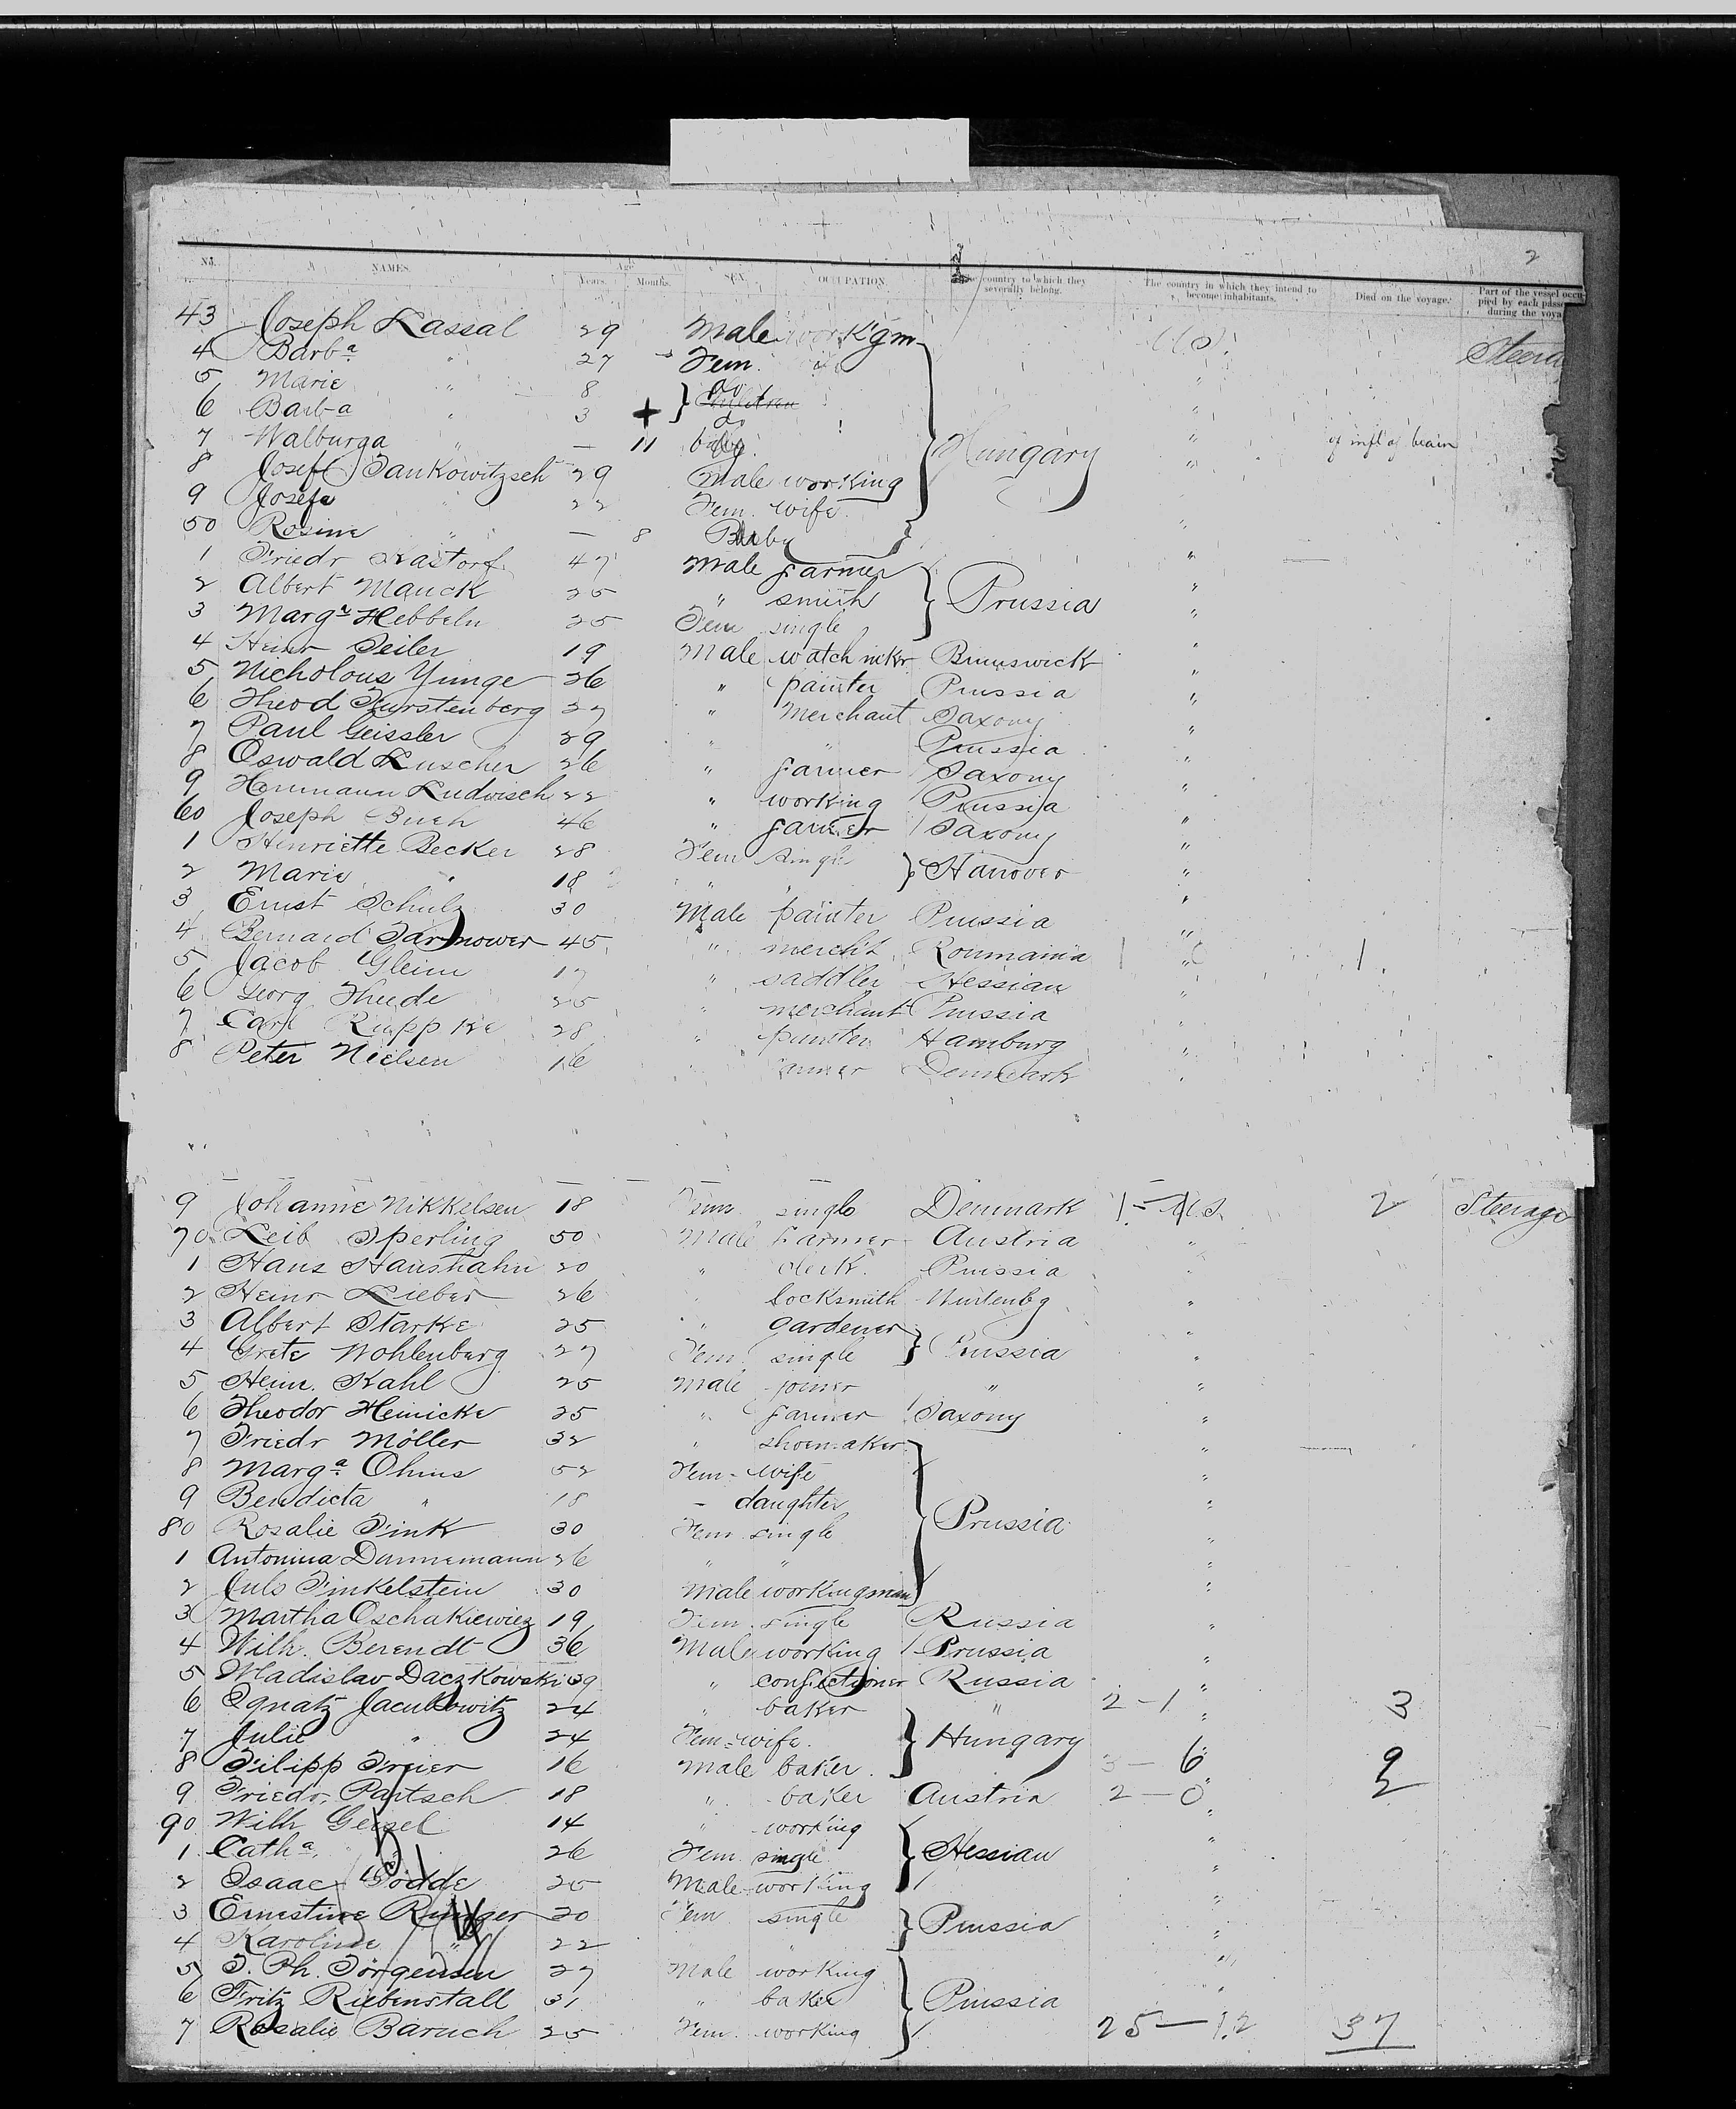 2
No. NAMES. Age Years. Months. SEX. OCCUPATION. The country to which they severally belong. The country in which they intend to become inhabitants. Died on the voyage. Part of the vessel occupied by each passe during the voya
43 Joseph Kassal 29 Male workgm U.S. Steera
4 Barbª " 27 Fem.
5 Marie " 8 do "
6 Barb-a " 3 + } Children do "
7 Walburga " — 11 baby Hungary " of infl of brain
8 Josef Jankowitzsch 29 Male working "
9 Josefa " 22 Fem. wife
50 Rosine " — 8 Baby "
1 Friedr Kastorf 47 Male farmer "
2 Albert Mauck 25 " smith Prussia "
3 Margª Hebbeln 25 Fem single "
4 Heinr Seiler 19 Male watchmkr Brunswick "
5 Nicholous Yunge 26 " painter Prussia "
6 Theod Furstenberg 27 " Merchant Saxony "
7 Paul Geissler 29 " " Prussia "
8 Oswald Luscher 26 " farmer Saxony "
9 Hermann Ludwisch 22 " working Prussia "
60 Joseph Buch 46 " farmer Saxony "
1 Henriette Becker 28 Fem single "
2 Marie " 18 " " Hanover "
3 Ernst Schulz 30 Male painter Prussia "
4 Bernard 45 " mercht Roumania 1 " 1
5 Jacob Gleim 17 " saddler Hessian
6 Georg Thude 25 " merchant Prussia "
7 Carl Ruppke 28 " painter Hamburg "
8 Peter Nielsen 16 " farmer Denmark "
9 Johanne Nikkelsen 18 Fem. single Denmark 1 - U.S. 2 Steerage
70 Leib Sperling 50 Male Farmer Austria "
1 Hans Haushahn 20 " clerk. Prussia "
2 Heinr Lieber 26 " locksmith Wurtenbg "
3 Albert Starke 25 " gardener "
4 Grete Wohlenburg 27 Fem. single Prussia "
5 Heinr. Kahl 25 Male joiner " "
6 Theodor Heinicke 25 " farmer Saxony "
7 Friedr Möller 32 " shoemaker "
8 Margª Ohms 52 Fem - wife "
9 Benedicta " 18 - daughter "
80 Rosalie Fink 30 Fem single Prussia "
1 Antonina Dannemann 26 " " "
2 Juls Finkelstein 30 Male workingman "
3 Martha Oschakiewicz 19 Fem. single Russia "
4 Wilh. Berendt 36 Male working Prussia "
5 Wladislav Daczkowski 39 " confectioner Russia "
6 Ignatz Jacubowitz 24 " baker " 2 - 1 " 3
7 Julie " 24 Fem - wife. Hungary "
8 Filipp Freier 16 Male baker. 3 - 6 9
9 Friedr. Partsch 18 " baker Austria 2 - 0 2
90 Wilh Geisel 14 " working "
1 Cathª. " 26 Fem single Hessian "
2 Isaac Godde 25 Male working "
3 Ernestine 20 Fem single "
4 Karoline " 22 Prussia "
5 J. Ph. Jörgensen 27 Male working "
6 Fritz Riebenstall 31 " baker Prussia "
7 Rosalie Baruch 25 Fem. working 25 - 12 37